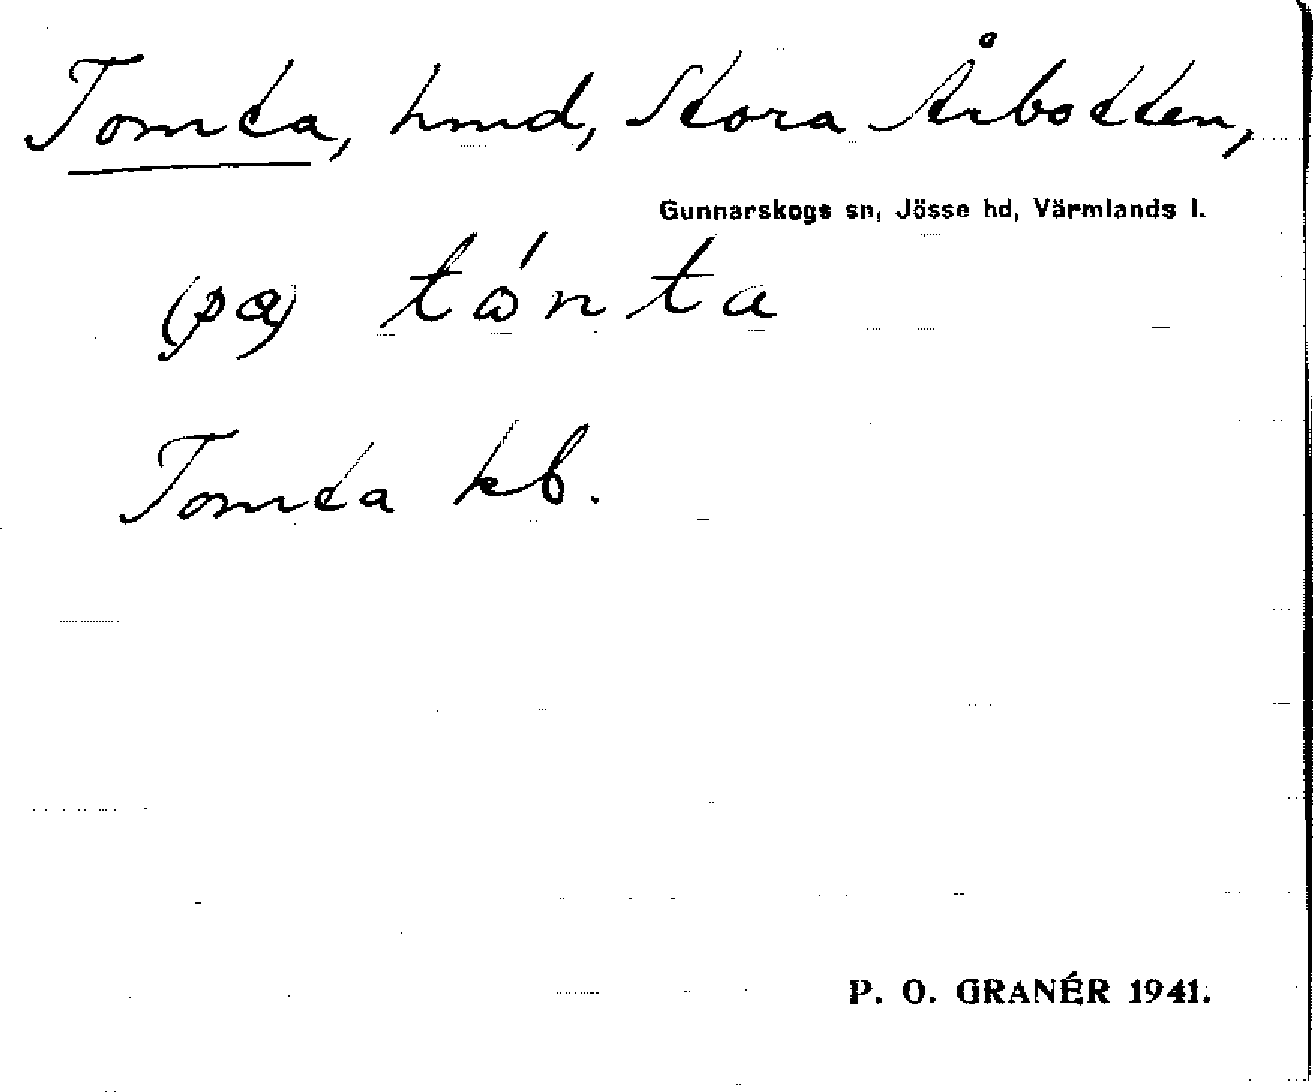 Tomta, hmd, Stora Årbotten,
Gunnarskogs sn, Jösse hd, Värmlands l.
(pa) tònta
Tomta kb.
P. O. GRANÉR 1941.